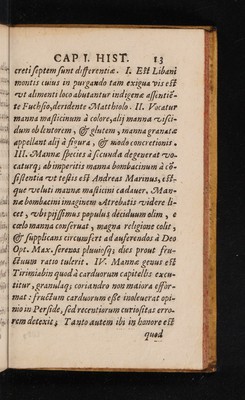 CAP I. HIST. 13
creti septem sunt differentiæ. I. Est Libani
montis cuius in purgando tam exigua vis est
vt alimenti loco abutantur indigenæ assentiē-
te Fuchsio, deridente Matthiolo. II. Vocatur
manna masticinum à colore, alij manna visci-
dum ob lentorem, & gluten, manna granatæ
appellant alij à figura, & modo concretionis.
III. Mannæ species à secunda degenerat vo-
caturq; ab imperitis manna bombacinum à cō-
sistentia vt testis est Andreas Marinus, est-
que veluti mannæ masticini cadauer. Man-
næ bombacini imaginem Atrebatis videre li-
cet, vbi pijssimus populus deciduum olim, e
cælo manna conseruat, magna religione colit,
& supplicans circumfert ad auferendos à Deo
Opt. Max. serenos pluuiosq; dies prout fru-
ctuum ratio tulerit. IV. Manna genus est
Tiriniabin quod à carduorum capitellis excu-
titur, granulaq; coriandro non maiora effor-
mat: fructum carduorum esse inoleuerat opi-
nio in Perside, sed recentiorum curiositas erro-
rem detexit; Tanto autem ibi in honore est
quod